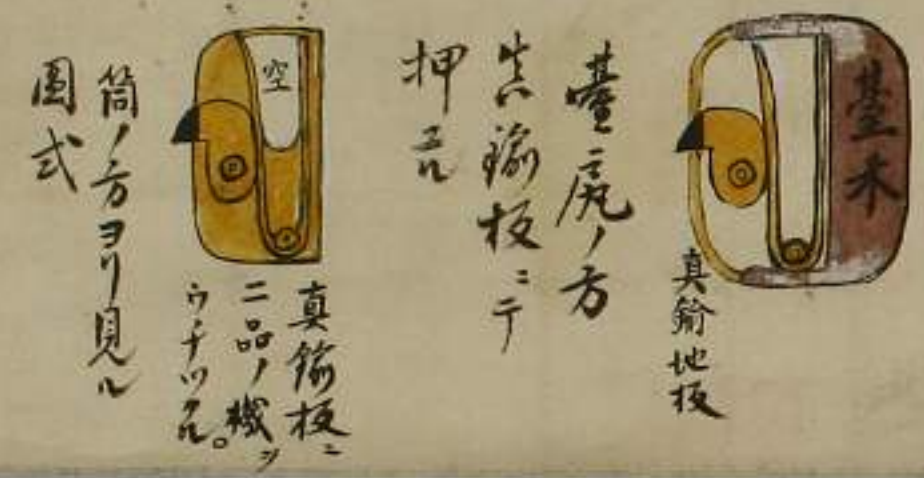 臺木
真鍮地板
臺ノ尻ノ方
真鍮板ニテ
押エル
空
真鍮板ニ
二品ノ機ヲ
ウチツクル。
筒ノ方ヨリ見ル
圖式